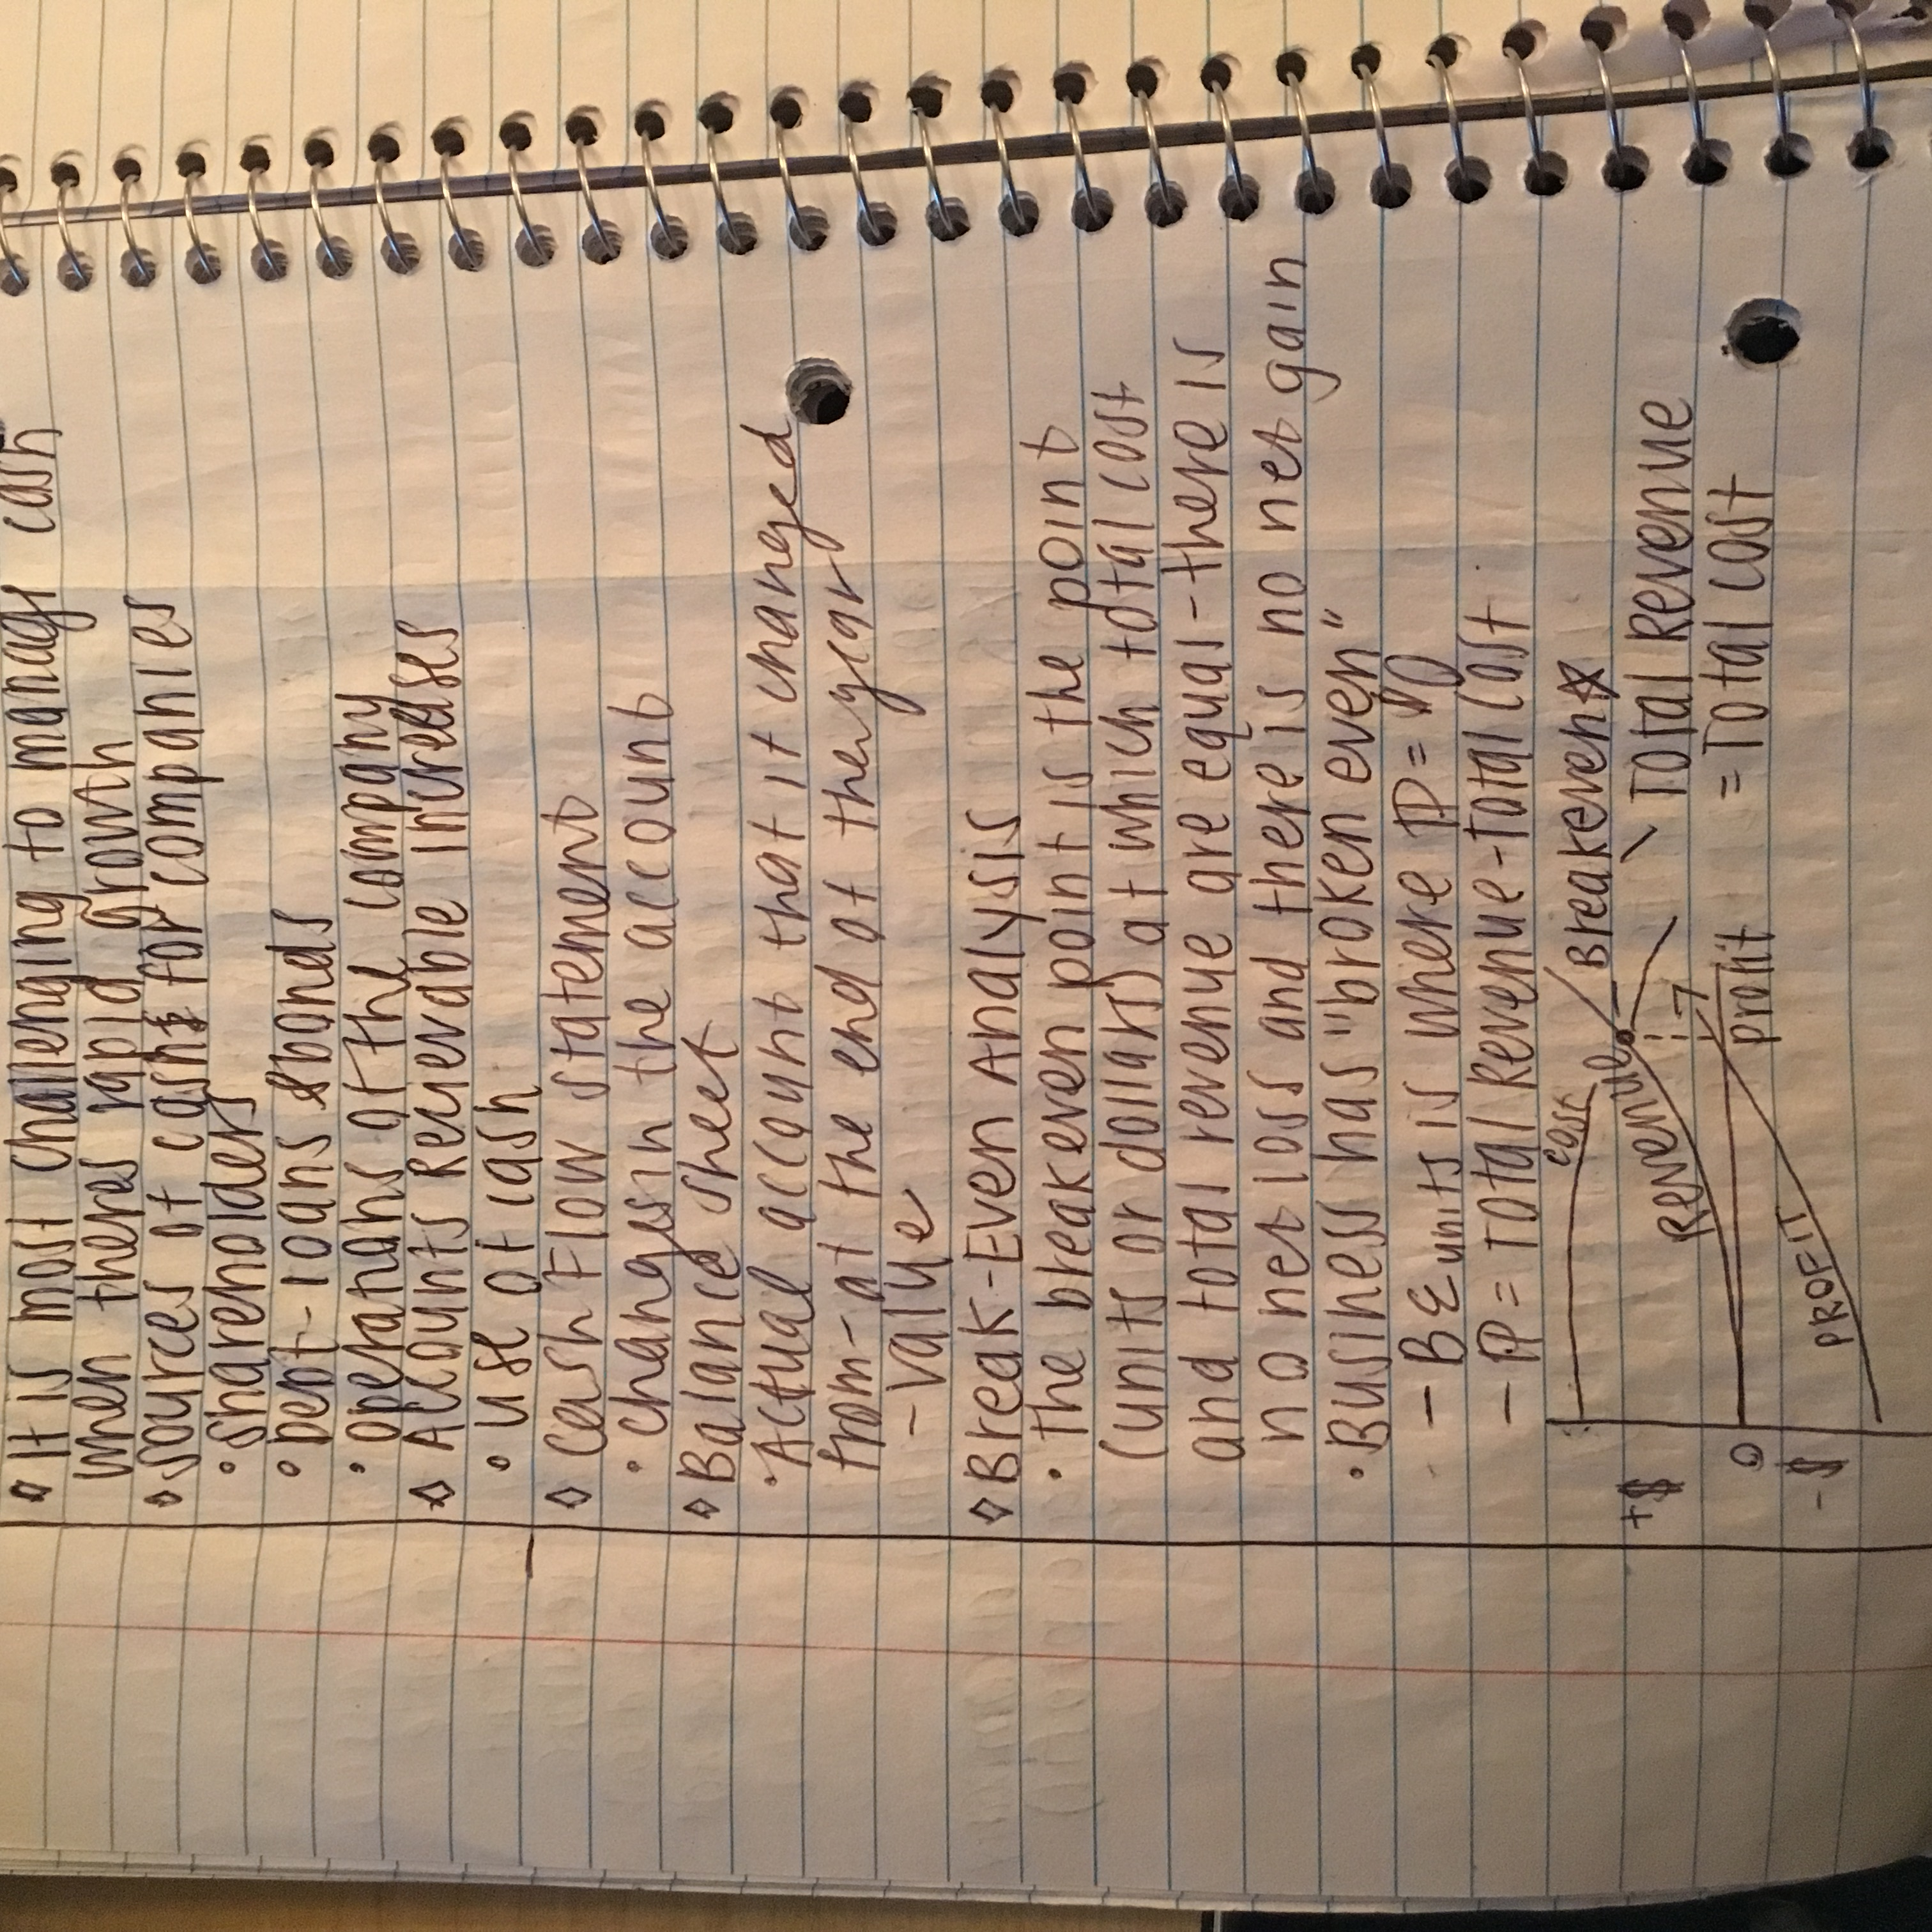 ◇ It is most challenging to manage cash
when theres rapid growth
◇ sources of cash for companies
• shareholders
• Debt - loans & bonds
• operations of the company
◇ Accounts Recievable increases
• use of cash
◇ Cash Flow statement
• changes in the account
◇ Balance sheet
• Actual account that it changed
from - at the end of the year
- value
◇ Break-Even Analysis
• the breakeven point is the point
(units or dollars) at which total cost
and total revenue are equal - there is
no net loss and there is no net gain
• Business has "broken even"
- BE units is where P = $0
- P = Total Revenue - Total Cost
cost
Breakeven ☆
+$
Revenue
Total Revenue
= Total cost
0
profit
-$
PROFIT